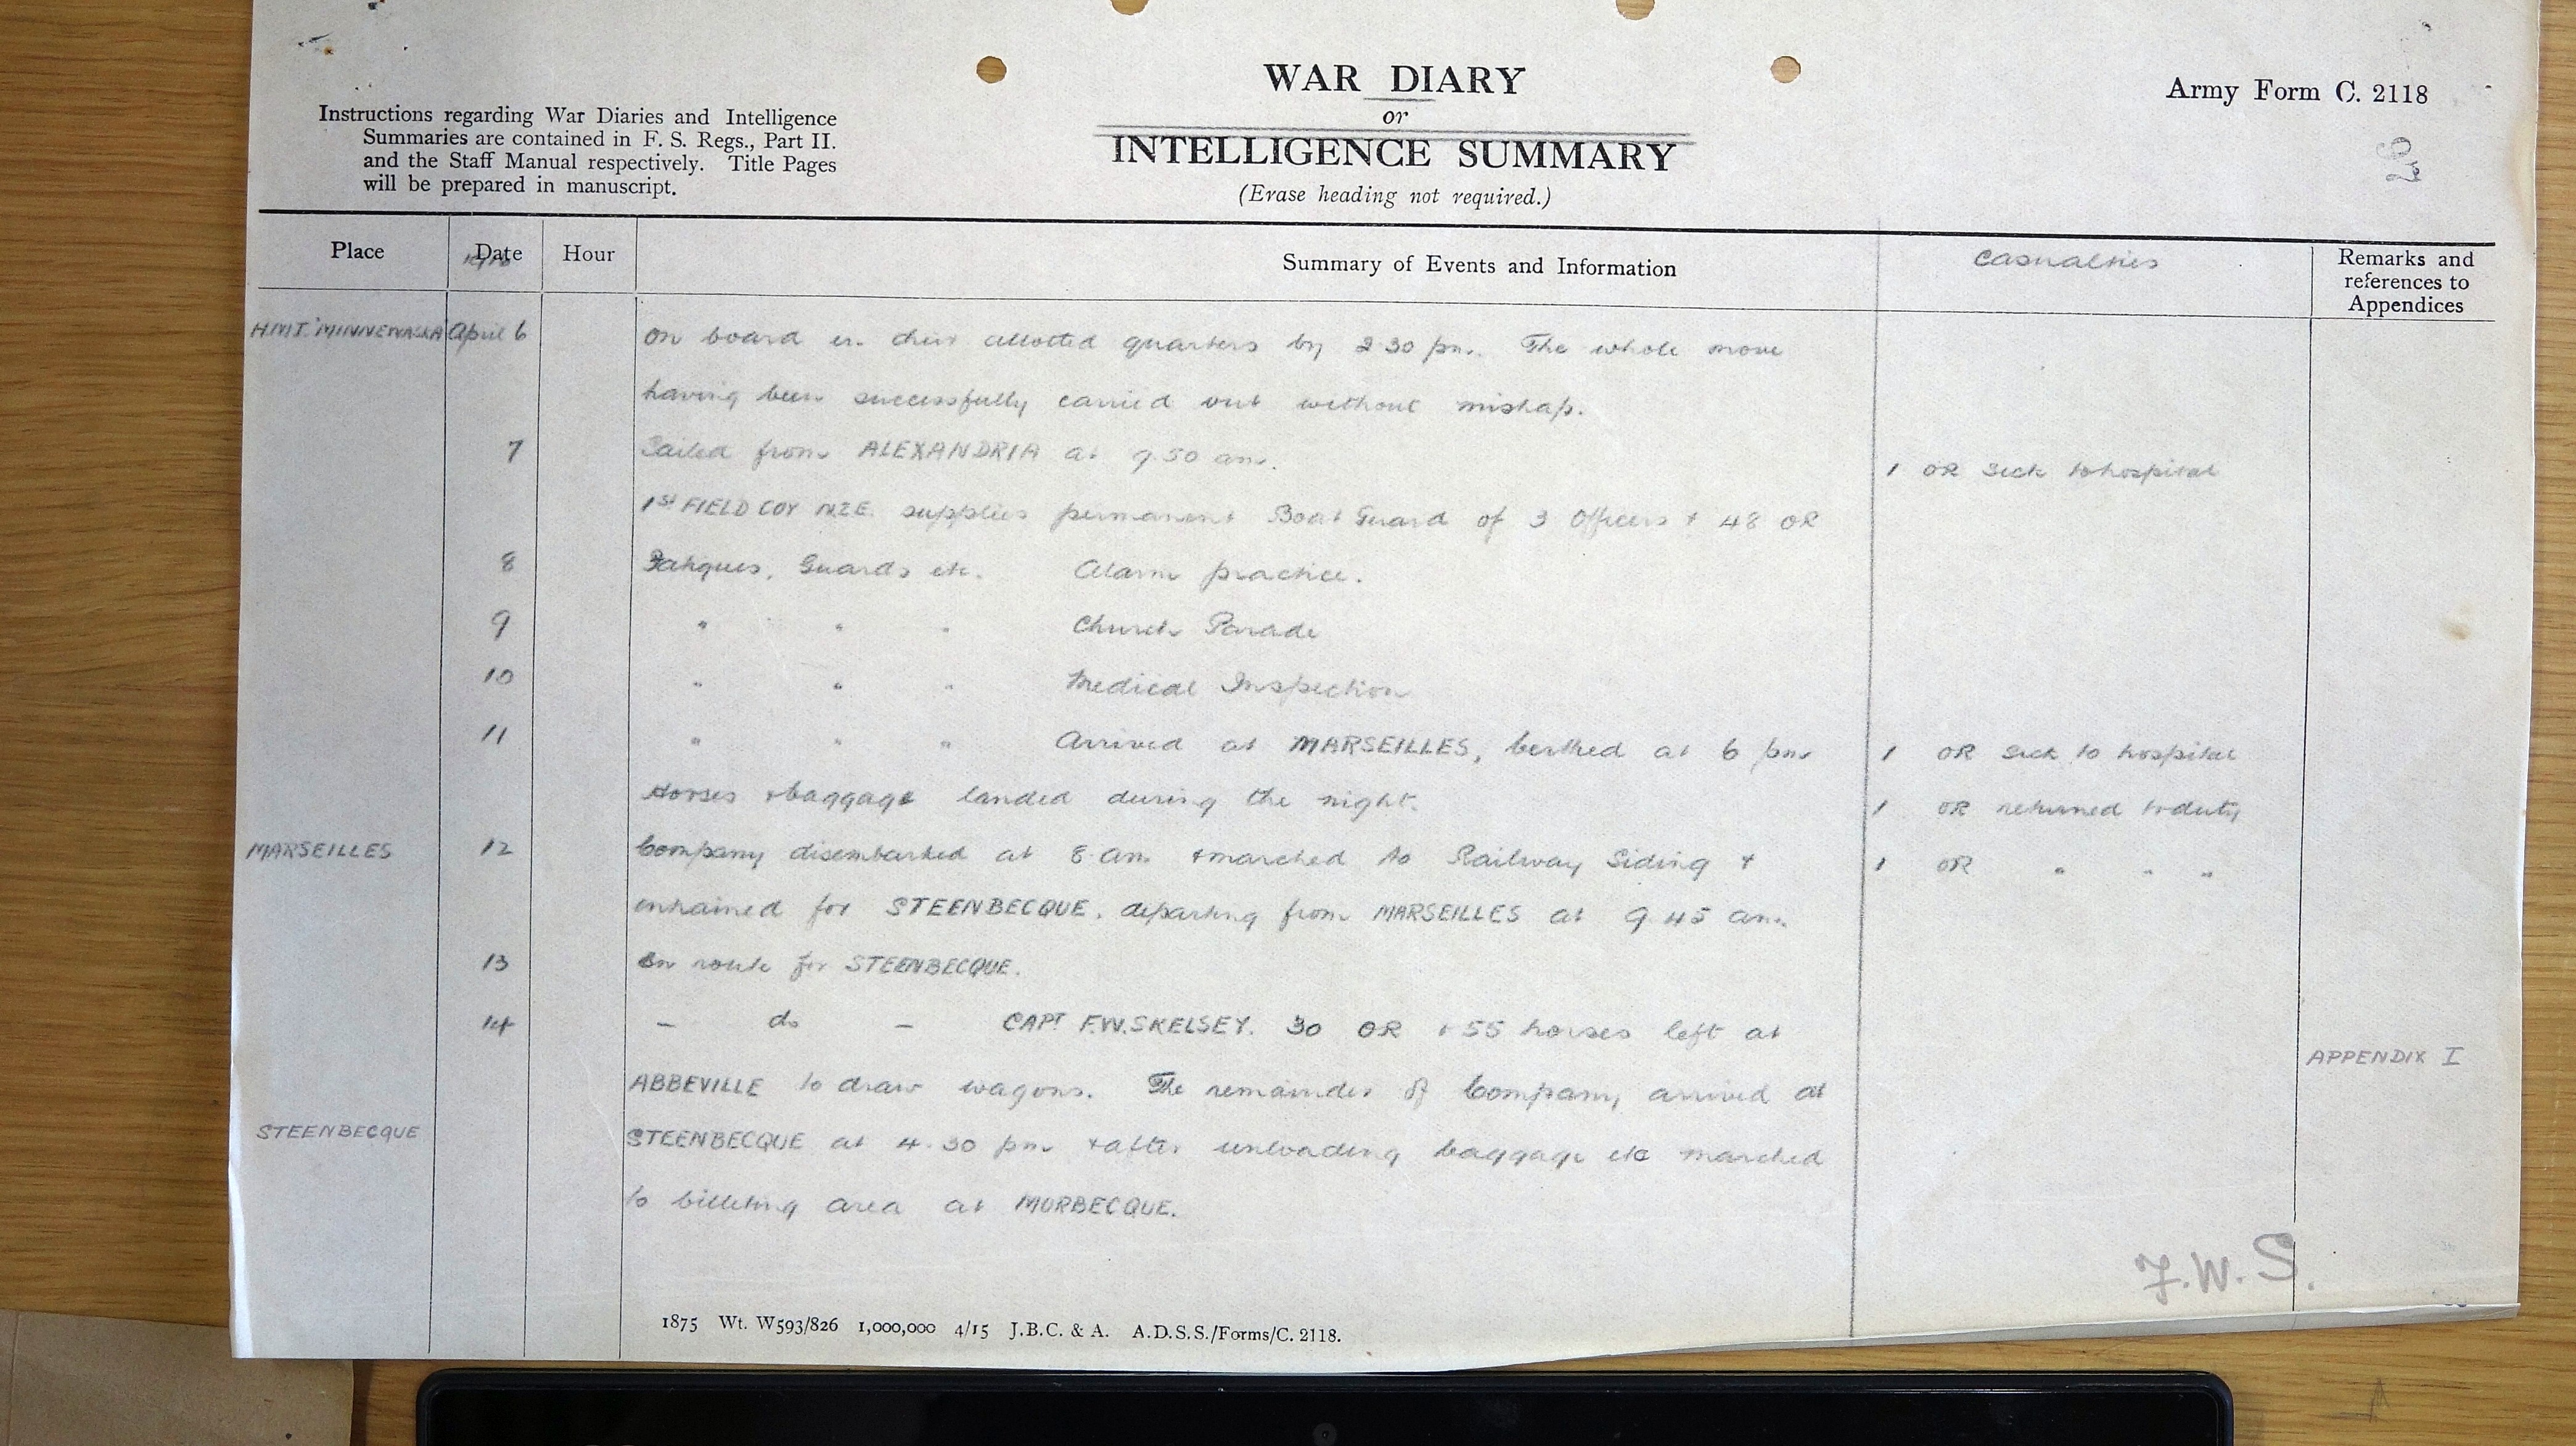 WAR DIARY
or
INTELLIGENCE SUMMARY
(Erase heading not required.)
Army Form C. 2118
Instructions regarding War Diaries and Intelligence
Summaries are contained in F. S. Regs., Part II.
and the Staff Manual respectively. Title Pages
will be prepared in manuscript.
Place Date Hour Summary of Events and Information Casualties Remarks and references to Appendices
1916
H.M.T. "MINNEWASKA" April 6 On board in their allotted quarters by 2.30 pm. The whole move
having been successfully carried out without mishap.
7 Sailed from ALEXANDRIA at 9.50 am. 1 OR sick to hospital
1st FIELD COY N.Z.E. supplies permanent Boat Guard of 3 Officers + 48 OR
8 Fatigues, Guards etc. Alarm practice.
9 " " " Church Parade
10 " " " Medical Inspection
11 " " " Arrived at MARSEILLES, berthed at 6 pm 1 OR sick to hospital
Horses + baggage landed during the night. 1 OR returned to duty
MARSEILLES 12 Company disembarked at 8 am + marched to Railway Siding + 1 OR " " "
entrained for STEENBECQUE. departing from MARSEILLES at 9.45 am.
13 En route for STEENBECQUE.
14 - do - CAPT F.W. SKELSEY. 30 OR + 55 horses left at
APPENDIX I
ABBEVILLE to draw wagons. The remainder of Company arrived at
STEENBECQUE STEENBECQUE at 4.30 pm + after unloading baggage etc marched
to billeting area at MORBECQUE.
F.W.S.
1875 Wt. W593/826 1,000,000 4/15 J.B.C. & A. A.D.S.S./Forms/C. 2118.